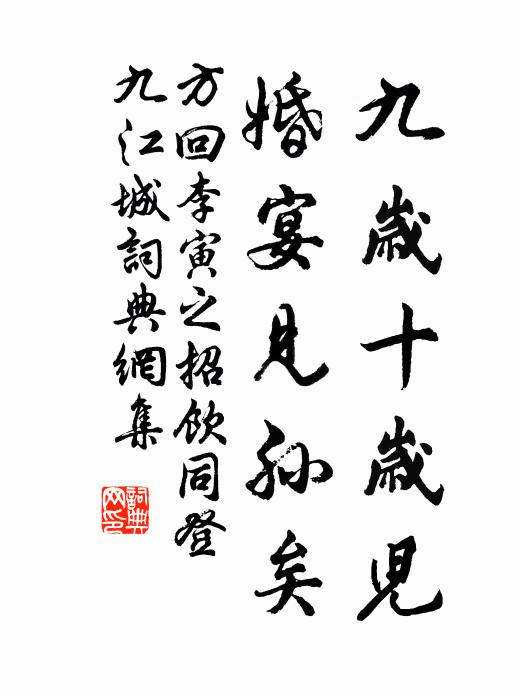 九歲十歲兒
婚宴見孫矣
方回李寅之招飲同登
九江城詞典網集
詞典
网印